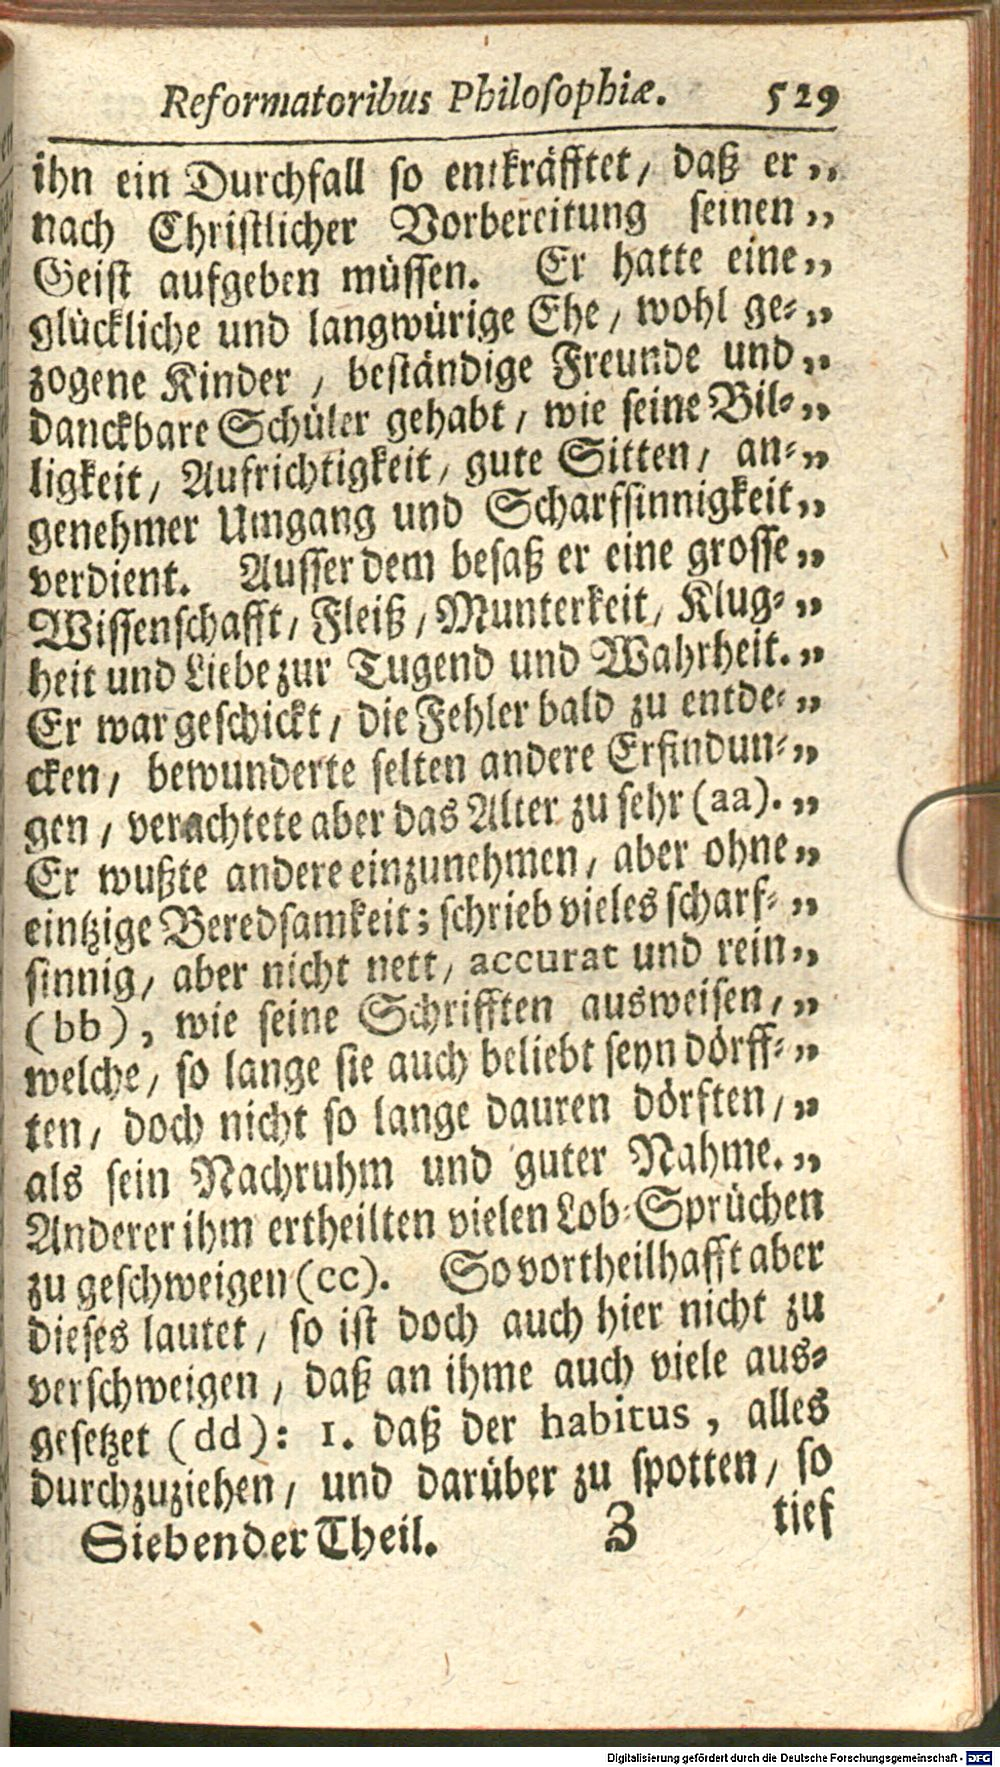 Reformatoribus Philosophiæ. 529
ihn ein Durchfall so entkräfftet, daß er„
nach Christlicher Vorbereitung seinen„
Geist aufgeben müssen. Er hatte eine„
glückliche und langwürige Ehe, wohl ge-„
zogene Kinder, beständige Freunde und„
danckbare Schüler gehabt, wie seine Bil-„
ligkeit, Aufrichtigkeit, gute Sitten, an-„
genehmer Umgang und Scharfsinnigkeit„
verdient. Ausser dem besaß er eine grosse„
Wissenschafft, Fleiß, Munterkeit, Klug-„
heit und Liebe zur Tugend und Wahrheit.„
Er war geschickt, die Fehler bald zu entde-„
cken, bewunderte selten andere Erfindun-„
gen, verachtete aber das Alter zu sehr (aa).„
Er wußte andere einzunehmen, aber ohne„
eintzige Beredsamkeit; schrieb vieles scharf-„
sinnig, aber nicht nett, accurat und rein„
(bb), wie seine Schrifften ausweisen,„
welche, so lange sie auch beliebt seyn dörff-„
ten, doch nicht so lange dauren dörften,„
als sein Nachruhm und guter Nahme.„
Anderer ihm ertheilten vielen Lob-Sprüchen
zu geschweigen (cc). So vortheilhafft aber
dieses lautet, so ist doch auch hier nicht zu
verschweigen, daß an ihme auch viele aus-
gesetzet (dd): 1. daß der habitus, alles
durchzuziehen, und darüber zu spotten, so
Siebender Theil. Z tief
Digitalisierung gefördert durch die Deutsche Forschungsgemeinschaft - DFG